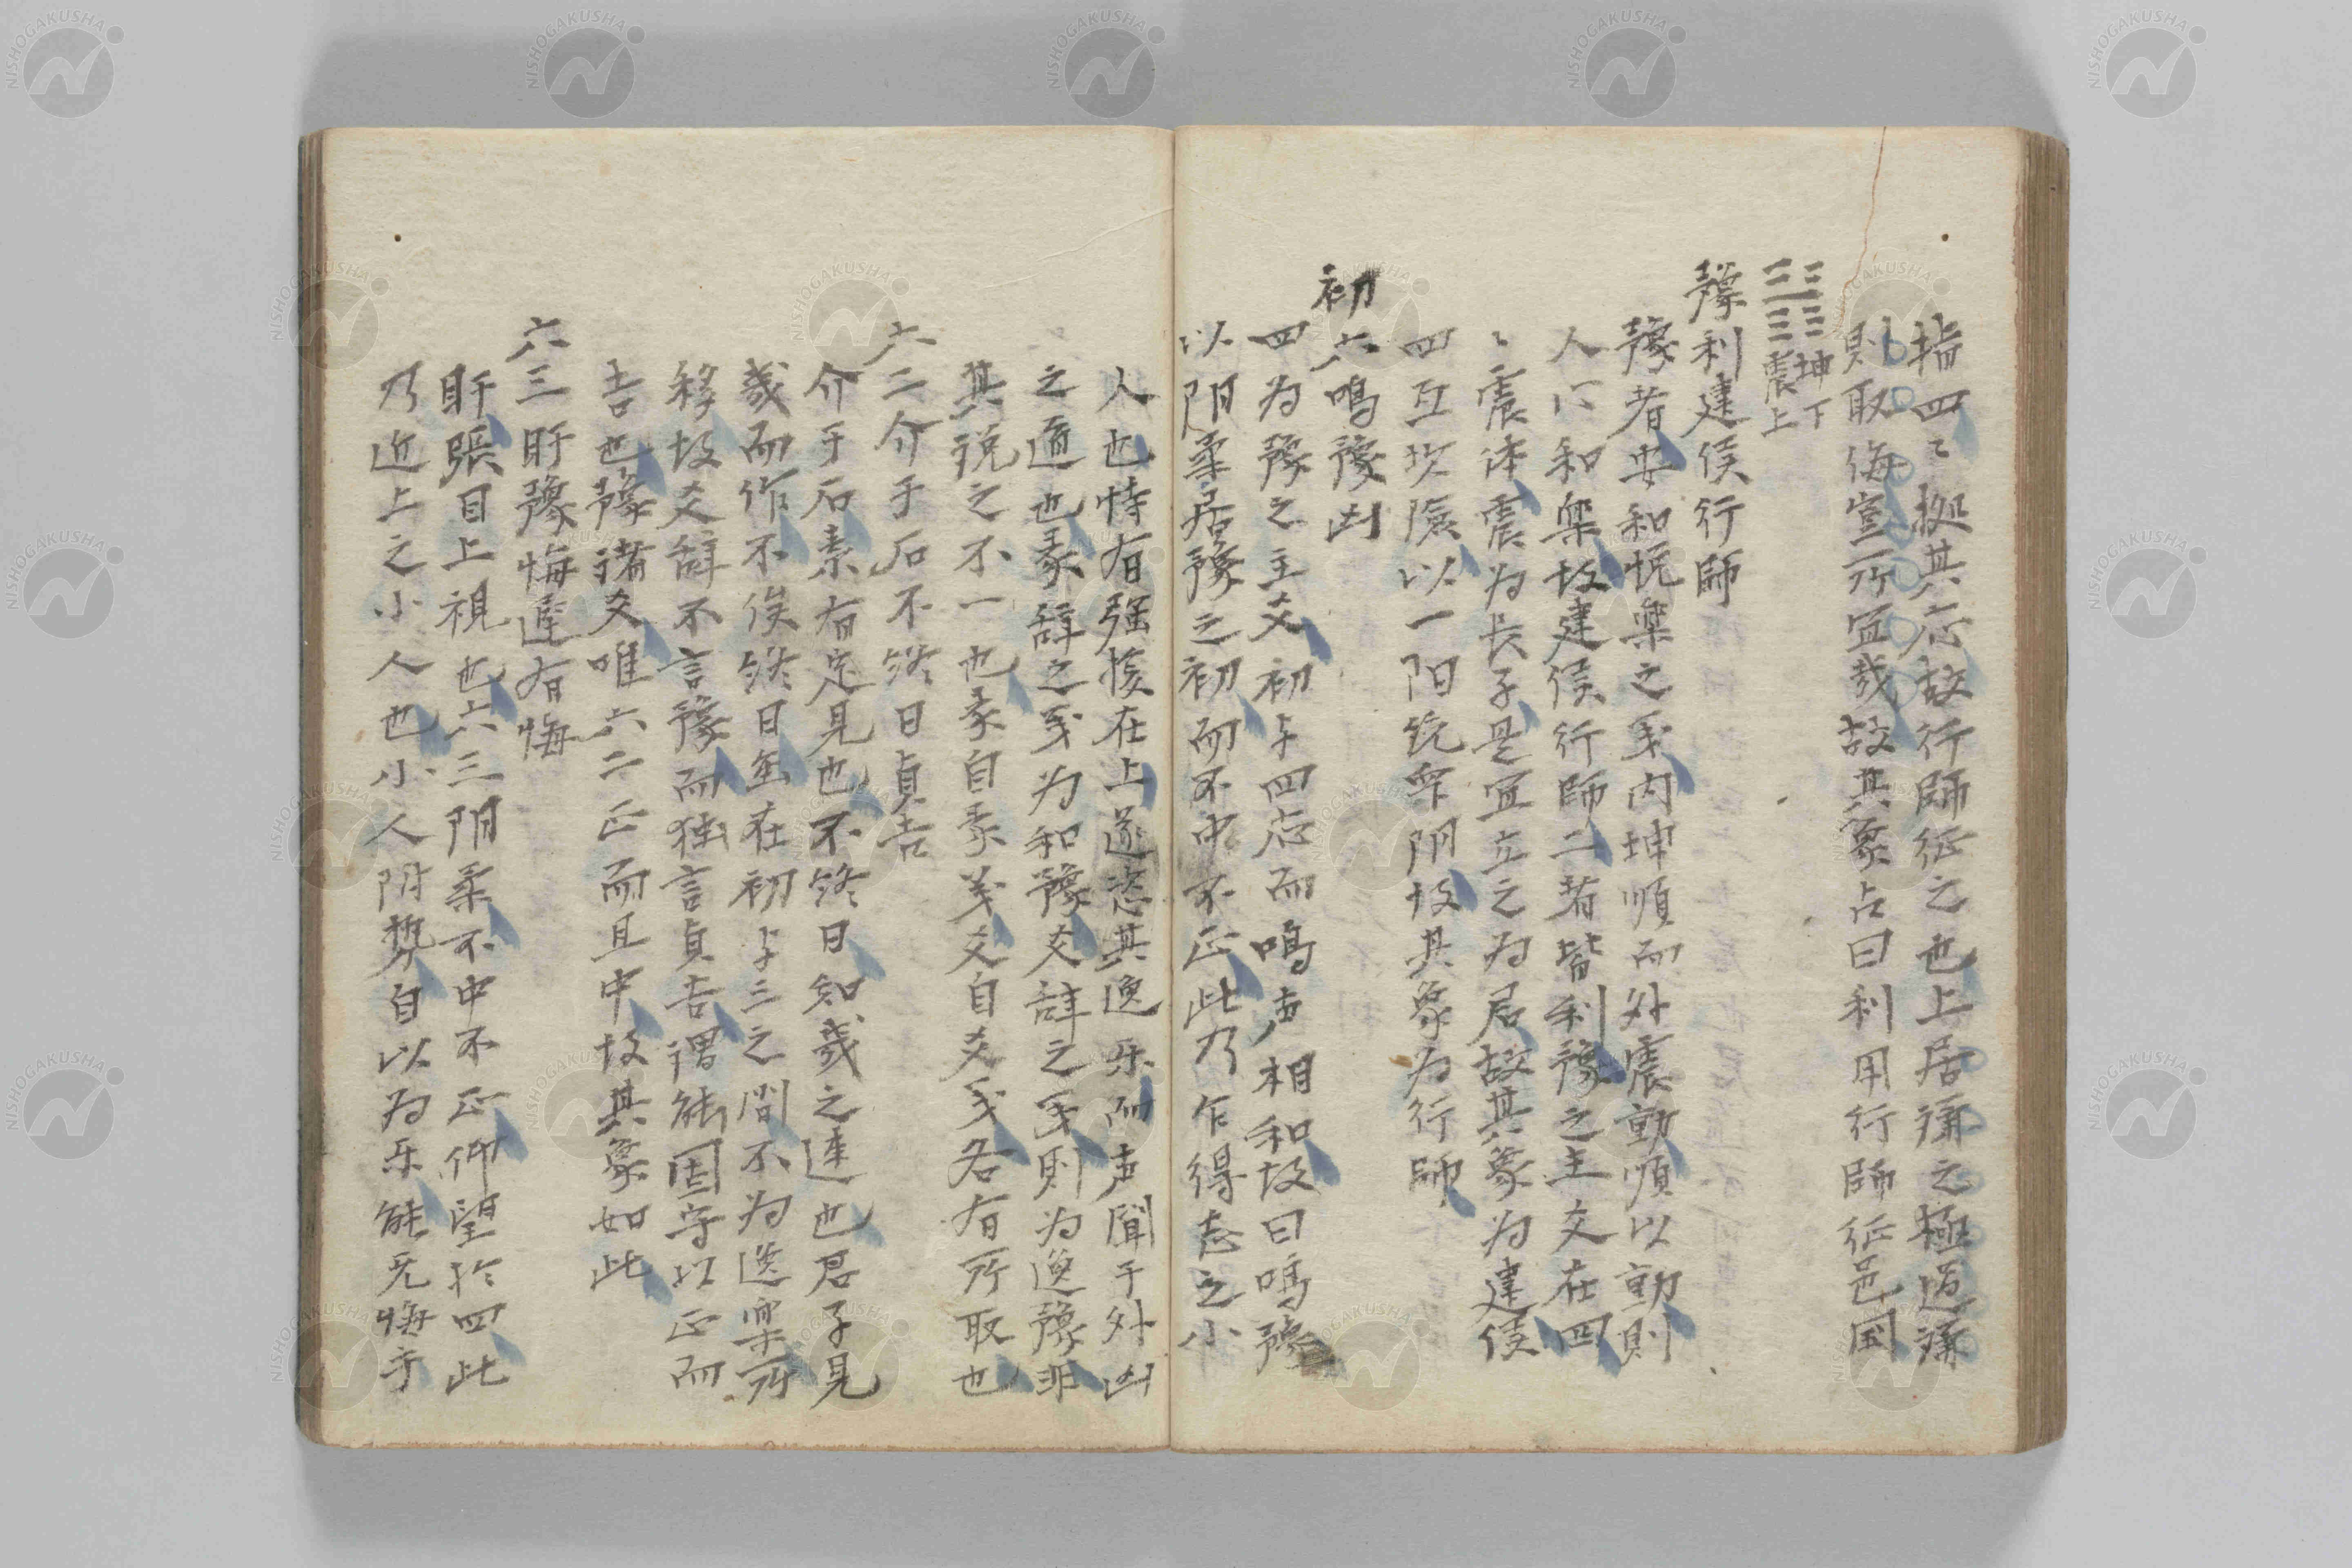 指四〻拠其応故行師征之也上居謙之極過謙
則取侮豈所宜哉故其象占曰利用行師征邑国
坤下
震上
豫利建侯行師
豫者安和悦楽之義内坤順而外震動順以動則
人心和楽故建侯行師二者皆利豫之主爻在四
〻震体震为长子是宜立之为君故其象为建侯
四互坎險以一阳統众阴故其象为行師
初六鳴豫凶
四为豫之主爻初与四応而鳴声相和故曰鳴豫
以阴柔居豫之初而不中不正此乃乍得志之小
人也恃有强援在上遂恣其逸乐而声聞于外凶
之道也彖辞之義为和豫爻辞之義則为逸豫非
其説之不一也彖自彖義爻自爻義各有所取也
六二介于石不終日貞吉
介于石素有定見也不終日知幾之速也君子見
幾而作不俟終日虽在初与三之間不为逸楽所
移故爻辞不言豫而独言貞吉謂能固守以正而
吉也豫諸爻唯六二正而且中故其象如此
六三盱豫悔遲有悔
盱張目上視也六三阴柔不中不正仰望於四此
乃近上之小人也小人附勢自以为乐能无悔乎
NISHOGAKUSHA